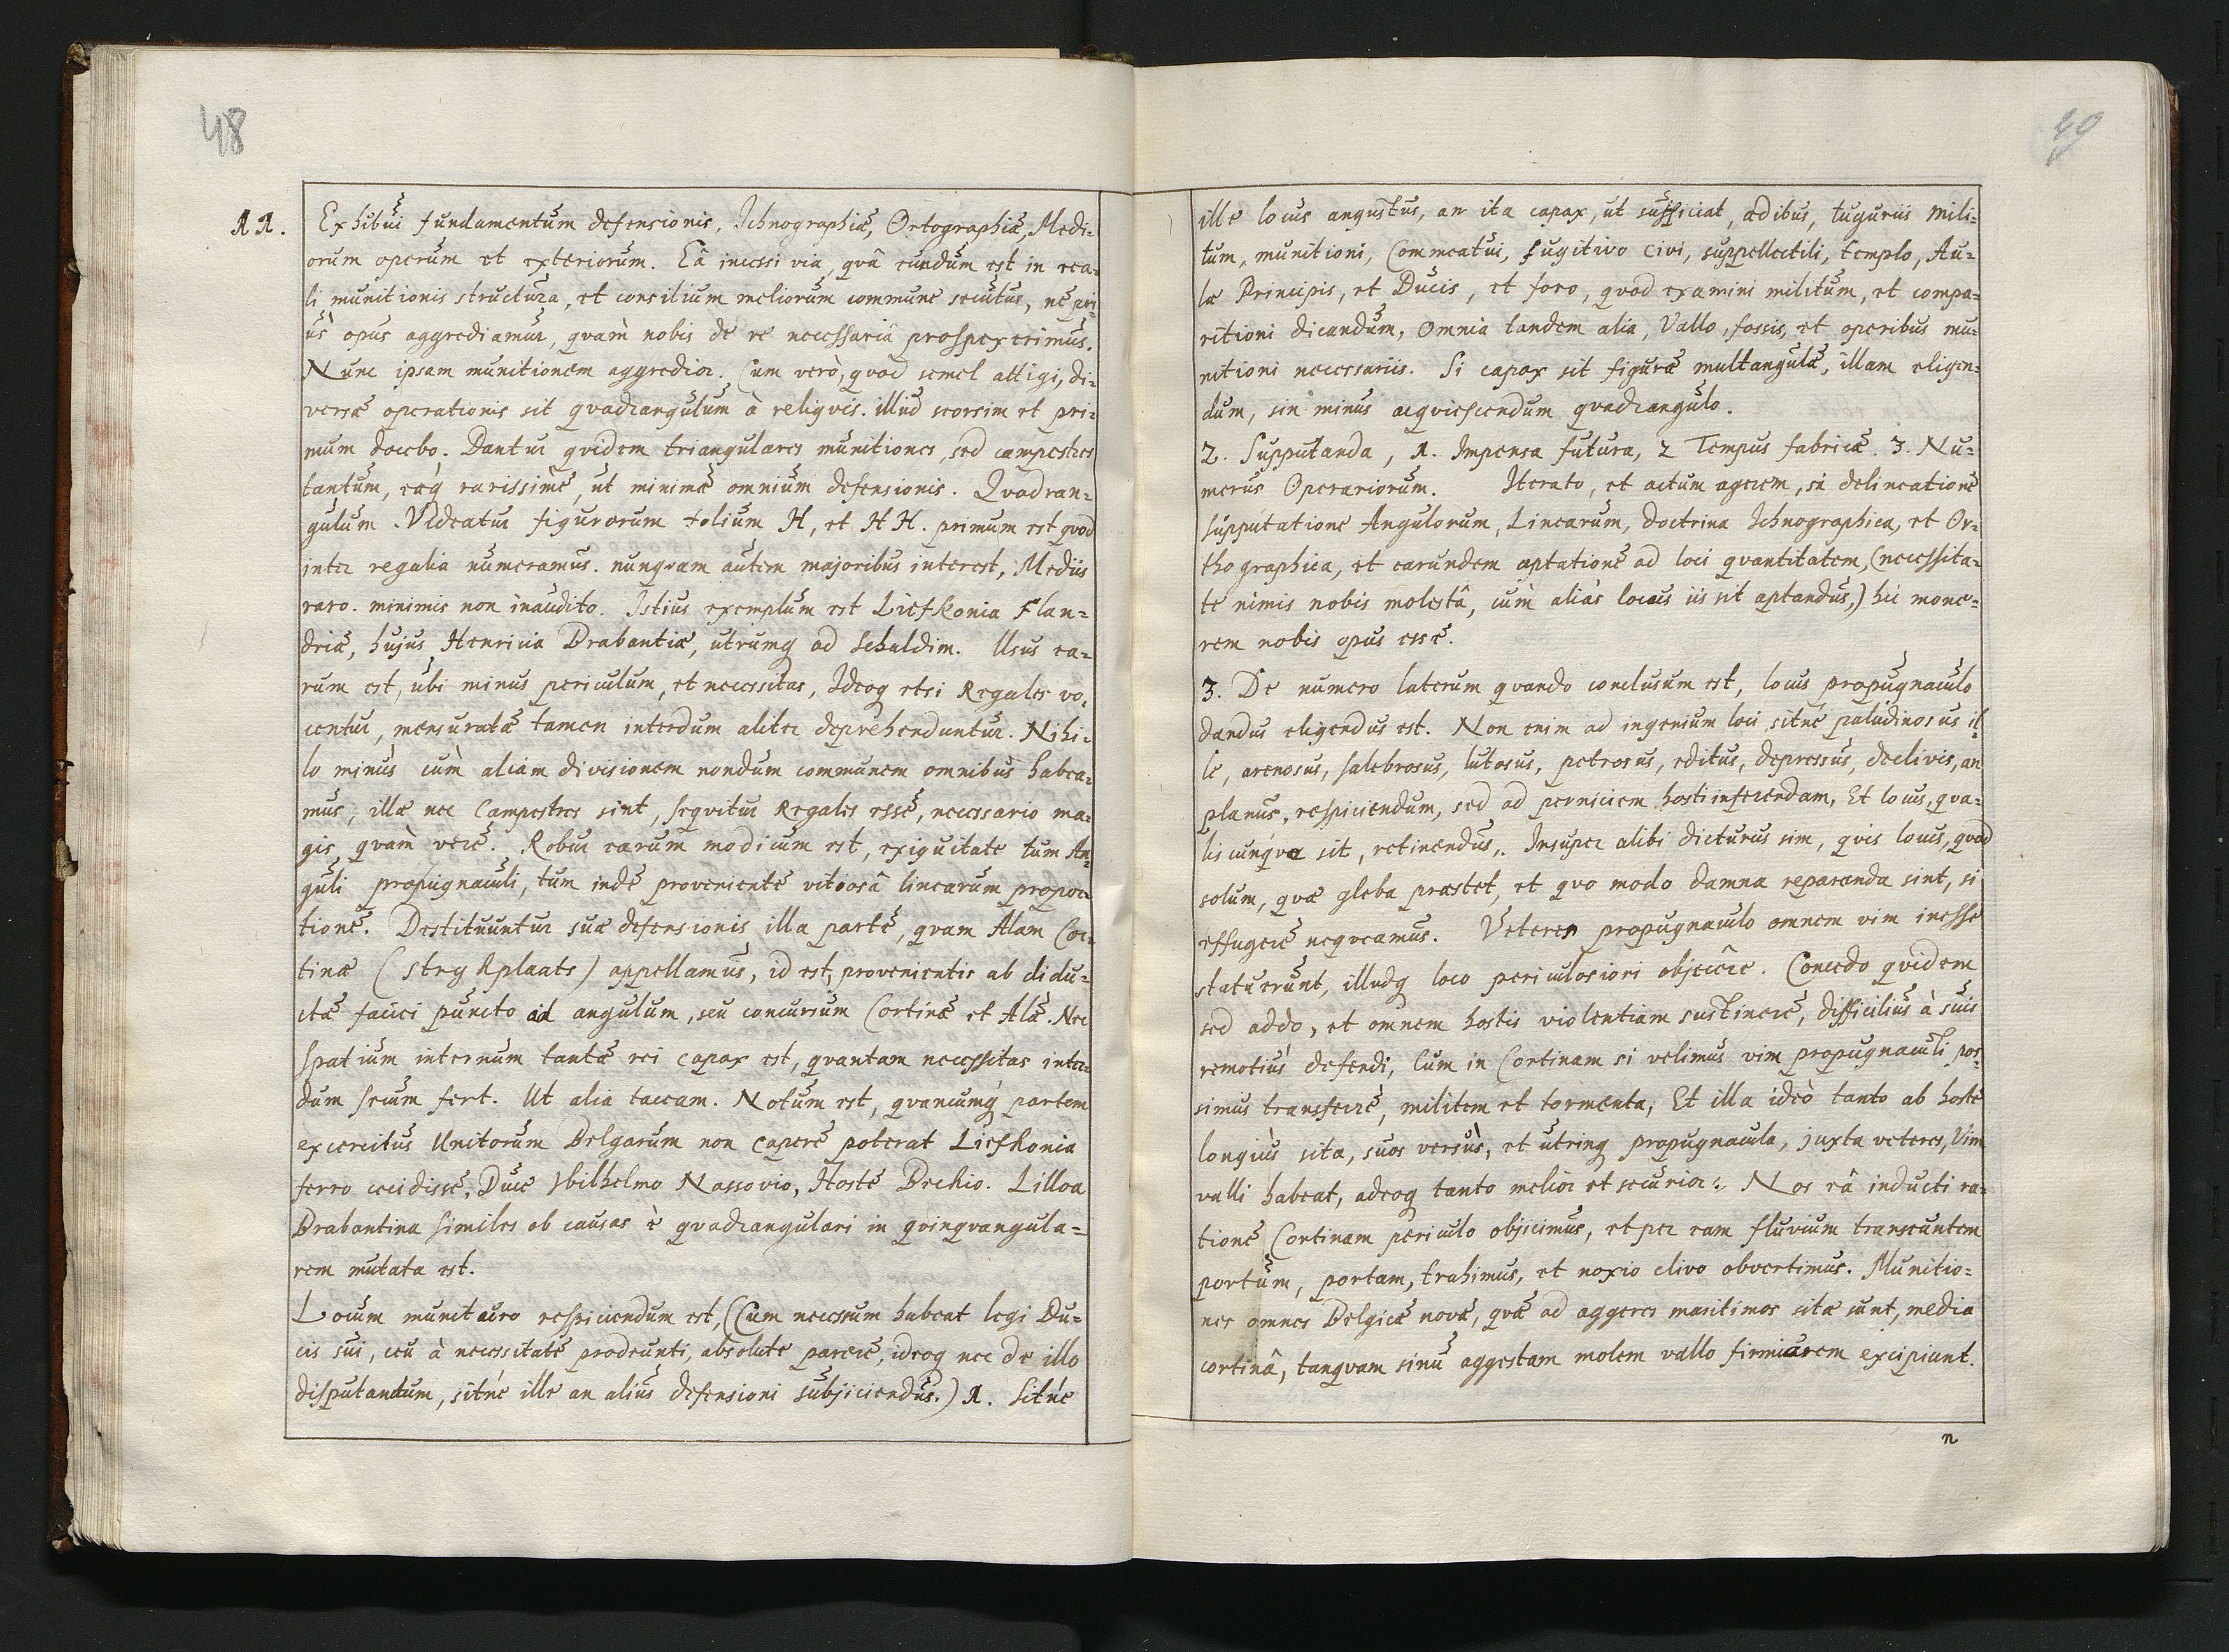 48
11. Exhibui fundamentum defensionis, Ichnographiæ, Ortographiæ, Medi=
orum operum et exteriorum. Eâ incessi via, qvâ eundum est in rea=
li munitionis structura, et consilium meliorum commune secutus, ne pri=
ùs opus aggrediamur, qvam nobis de re necessaria prospexerimus.
Nunc ipsam munitionem aggredior. Cum verò, qvod semel attigi, di=
versæ operationis sit qvadrangulum à reliqvis. illud seorsim et pri=
mum docebo. Dantur qvidem triangulares munitiones, sed campestres
tantum, eæq rarissimè, ut minimæ omnium defensionis. Qvadran=
gulum. Videatur figurarum folium H, et HH. primum est qvod
inter regalia numeramus. nunqvam autem majoribus interest, Mediis
raro. minimis non inaudito. Istius exemplum est Liefkonia Flan=
driæ, hujus Henricia Brabantiæ, utrumq ad Schaldim. Usus ea=
rum est, ubi minus periculum, et necessitas, Ideoq etsi Regales vo=
centur, mensuratæ tamen interdum aliter deprehenduntur. Nihi=
lo minùs cùm aliam divisionem nondum communem omnibus habea=
mus, illæ nec Campestres sint, seqvitur Regales esse, necessario ma=
gis qvàm verè. Robur earum modicum est, exiguitate tum An=
guli propugnaculi, tum inde proveniente vitiosâ linearum propor=
tione. Destituuntur suæ defensionis illa parte, qvam Alam Cor=
tinæ (strykplaats) appellamus, id est, provenientis ab didu=
ctæ faciei puncto ad angulum, seu concursum Cortinæ et Alæ. Nec
spatium internum tantæ rei capax est, qvantam necessitas inter=
dum secum fert. Ut alia taceam. Notum est, qvancumq partem
exercitus Unitorum Belgarum non capere poterat Liefkonia
ferro cecidisse, Duce Wilhelmo Nassovio, Hoste Brekio. Lilloa
Brabantina similes ob causas è qvadrangulari in qvinqvangula=
rem mutata est.
Locum munituro respiciendum est, (Cum necessum habeat legi Du=
cis sui, ceu à necessitate prodeunti, absolute parere, ideoq nec de illo
disputandum, sitne ille an alius defensioni subjiciendus.) 1. Sitne
49
ille locus angustus, an ita capax, ut sufficiat, ædibus, tuguriis mili=
tum, munitioni, Commeatui, fugitivo Civi, suppellectili, templo, Au=
læ Principis, et Ducis, et foro, qvod examini militum, et compa=
ritioni dicandum, omnia tandem alia, Vallo, fossis, et operibus mu=
nitioni necessariis. Si capax sit figuræ multangulæ, illam eligen=
dum, sin minus acqviescendum qvadrangulo.
2. Supputanda, 1. Impensa futura, 2 Tempus fabricæ. 3. Nu=
merus Operariorum. Iterato, et actum agerem, si delineatione
supputatione Angulorum, Linearum, doctrina Ichnographica, et Or=
thographica, et earundem aptatione ad loci qvantitatem, (necessita=
te nimis nobis molestâ, cùm aliàs locus iis sit aptandus,) hic mone=
rem nobis opus esse.
3. De numero laterum qvando conclusum est, locus propugnaculo
dandus eligendus est. Non enim ad ingenium loci, sitne paludinosus il=
le, arenosus, salebrosus, lutosus, petrosus, editus, depressus, declivis, an
planus, respiciendum, sed ad perniciem hosti inferendam, Et locus, qva=
liscunqve sit, retinendus. Insuper alibi dicturus sim, qvis locus, qvod
solum, qvæ gleba præstet, et qvo modo damna reparanda sint, si
effugere neqveamus. Veteres propugnaculo omnem vim inesse
statuerunt, illudq loco periculosiori objecêre. Concedo qvidem
sed addo, et omnem hostis violentiam sustinere, difficilius à suis
remotius defendi, Cum in Cortinam si velimus vim propugnaculi pos=
simus transferre, militem et tormenta, Et illa ideò tanto ab hoste
longiùs sita, suos versùs, et utrinq propugnacula, juxta veteres, Vim
valli habeat, adeoq tanto melior et securior. Nos eâ inducti ra=
tione Cortinam periculo objicimus, et per eam fluvium transeuntem
portum, portam, trahimus, et noxio clivo obvertimus. Munitio=
nes omnes Belgicæ novæ, qvæ ad aggeres maritimos sitæ sunt, media
cortinâ, tanqvam sinu aggestam molem vallo firmiorem excipiunt.
n